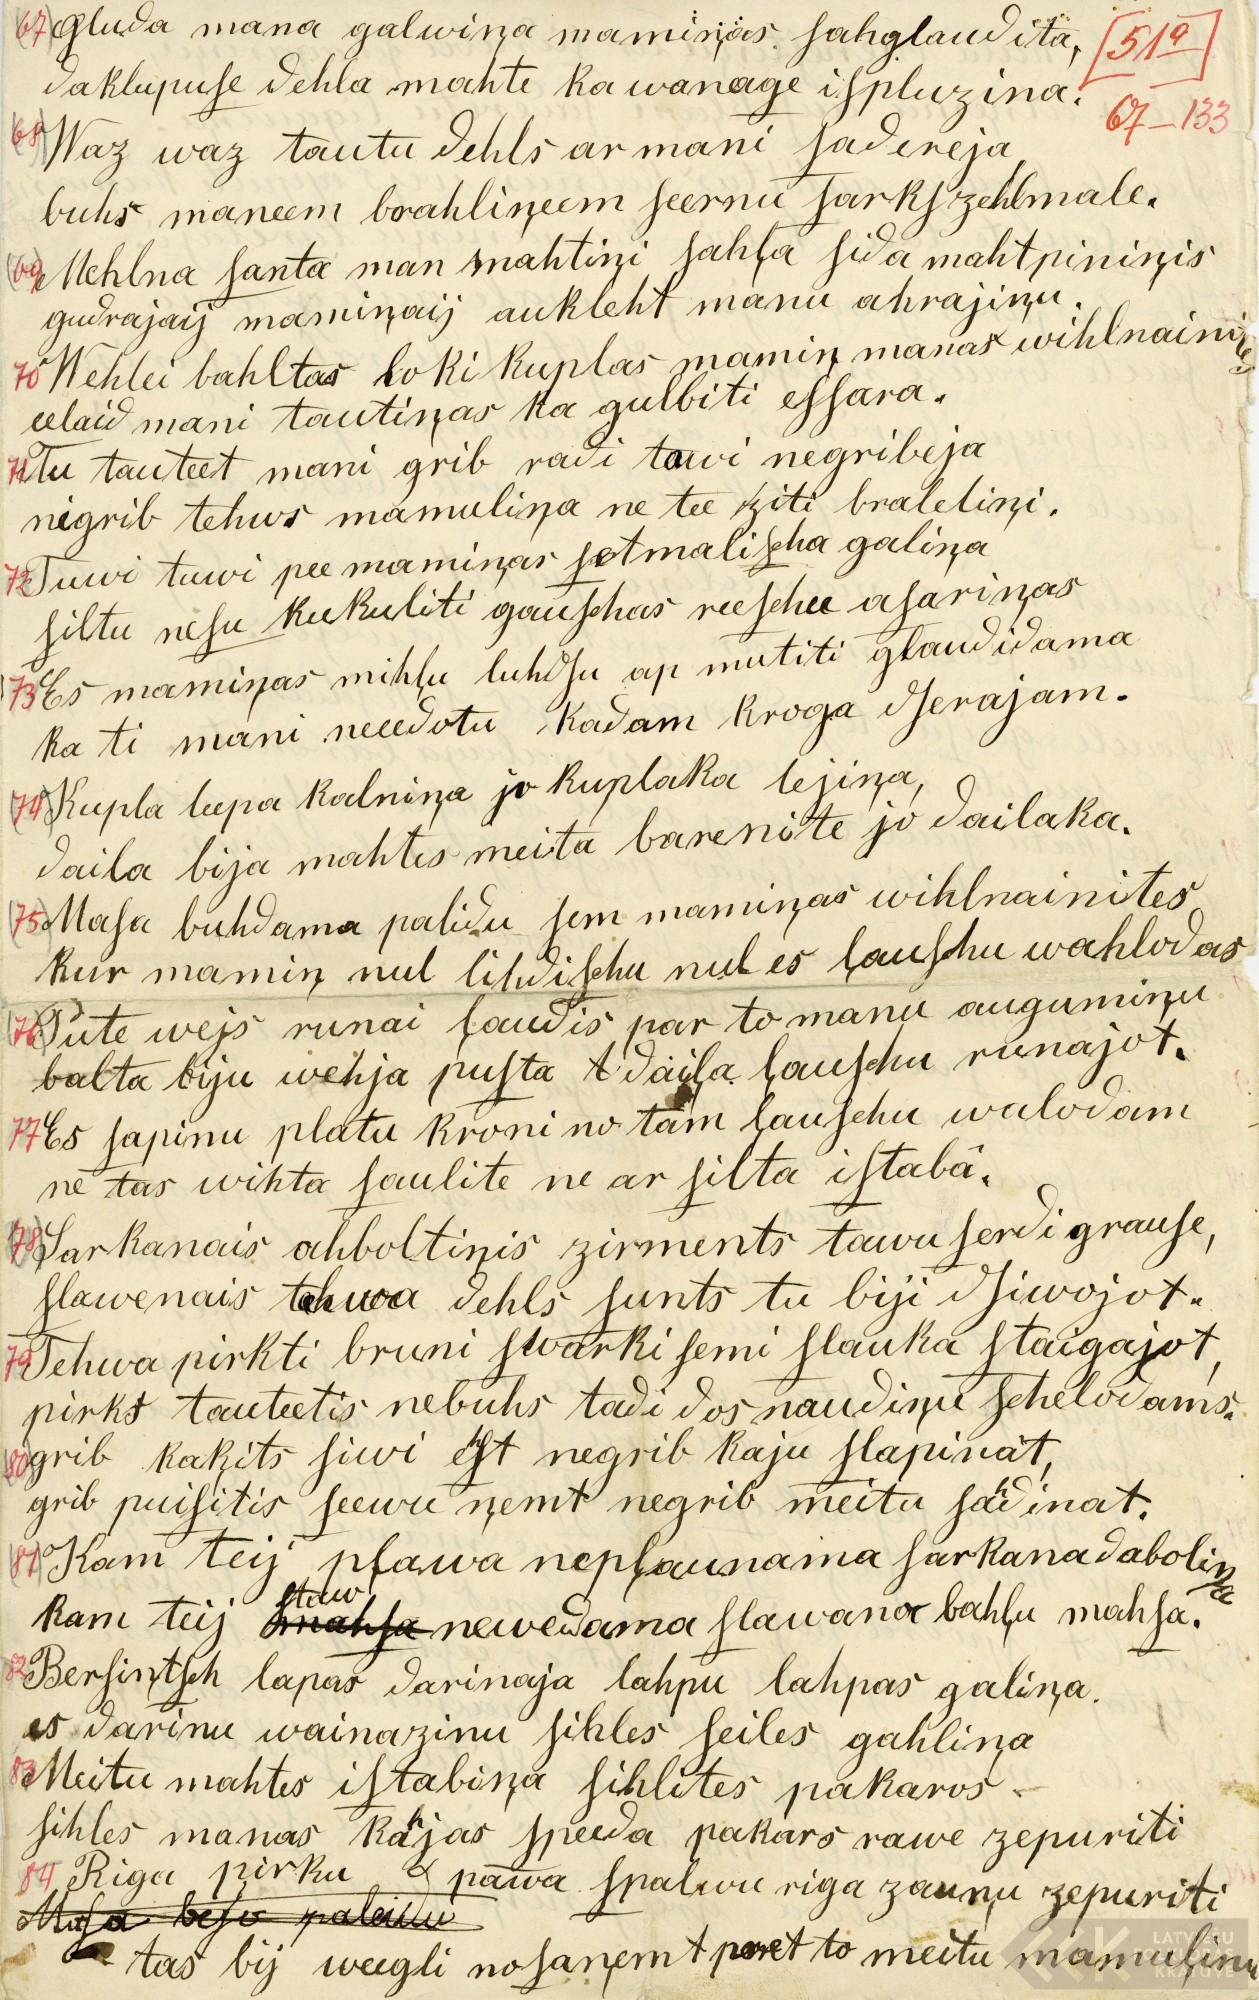 67) Gluda mana galwiņa mamiņas sahglaudita, [51a]
daklupuse dehla mahte ka wanage ispluzina. 67–133
68) Waz waz tautu dehls ar mani sadereja
buhs maneem brahliņeem seernu sarks zehlmale.
69) Mehlna santa man mahtiņi sahļa sida mahtpininis
gudrajaij mamiņaij aukleht manu ahrajiņu.
70 Wehlei bahltas loki kuplas mamiņ manas wihlnainites
eelaid mani tautiņas ka gulbiti essara.
71 Tu tauteet mani grib radi tawi negribeja
nigrib tehws mamuliņa ne tee ziti braleliņi.
72 Tuwi tuwi pee mamiņas setmalischa galiņa
siltu nesu kukuliti gauschas reeschu asariņas
73 Es mamiņas mihļu luhdsu ap mutiti glaudidama
ka ti mani neeedotu kadam kroga dserajam.
74) Kupla leepa kalniņa jo kuplaka lejiņa,
daila bija mahtes meita barenite jo dailaka.
75) Masa buhdama palidu sem mamiņas wihlnainites
kur mamiņ nul lihdischu nul es ļauschu wahlodas
76) Pute wejs runai ļaudis par to manu augumiņu
balta biju wehja pusta t daiļa ļauschu runajot.
77 Es sapinu platu kroni no tam ļauschu walodam
ne tas wihta saulite ne ar silta istabâ.
78) Sarkanais ahboltiņis zirments tawu serdi grause,
slawenais tehwa dehls sunts tu biji dsiwojot.
79 Tehwa pirkti bruni swarki semi slauka staigajot,
pirks tauteetis nebuhs tadi dos naudiņu schelodams.
80) grib kaķits siwi ehst negrib kaju slapinat,
grib puisitis seewu ņemt negrib meitu sahdinat.
81) Kam teij pļawa nepļaunama sarkana daboliņa
kam teij staw newedama slawana bahļu mahsa.
82 Bersiņtsch lapas darinaja lahpu lahpas galiņa.
es darinu wainazinu sihles seiles gahliņa
83 Meitu mahtes istabiņa sihlites pakaros
sihles manas kahjas speeda pakars rawe zepuriti
84 Riga pirku pawa spalwu riga zauņu zepuriti
Masa beso palaidu
tas bij weegli nosaņemt pret to meitu mamuļiņu